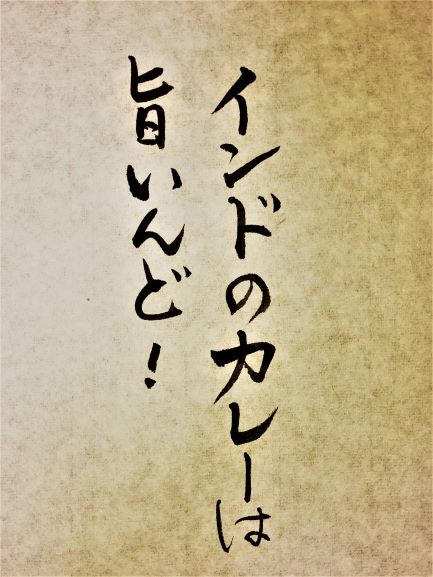 インドのカレーは
旨いんど！